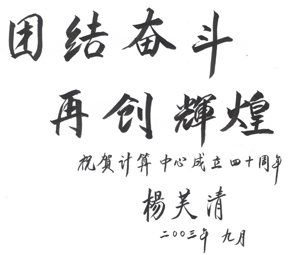 团结奋斗
再创輝煌
祝贺计算中心成立四十周年
楊芙清
二〇〇三年 九月